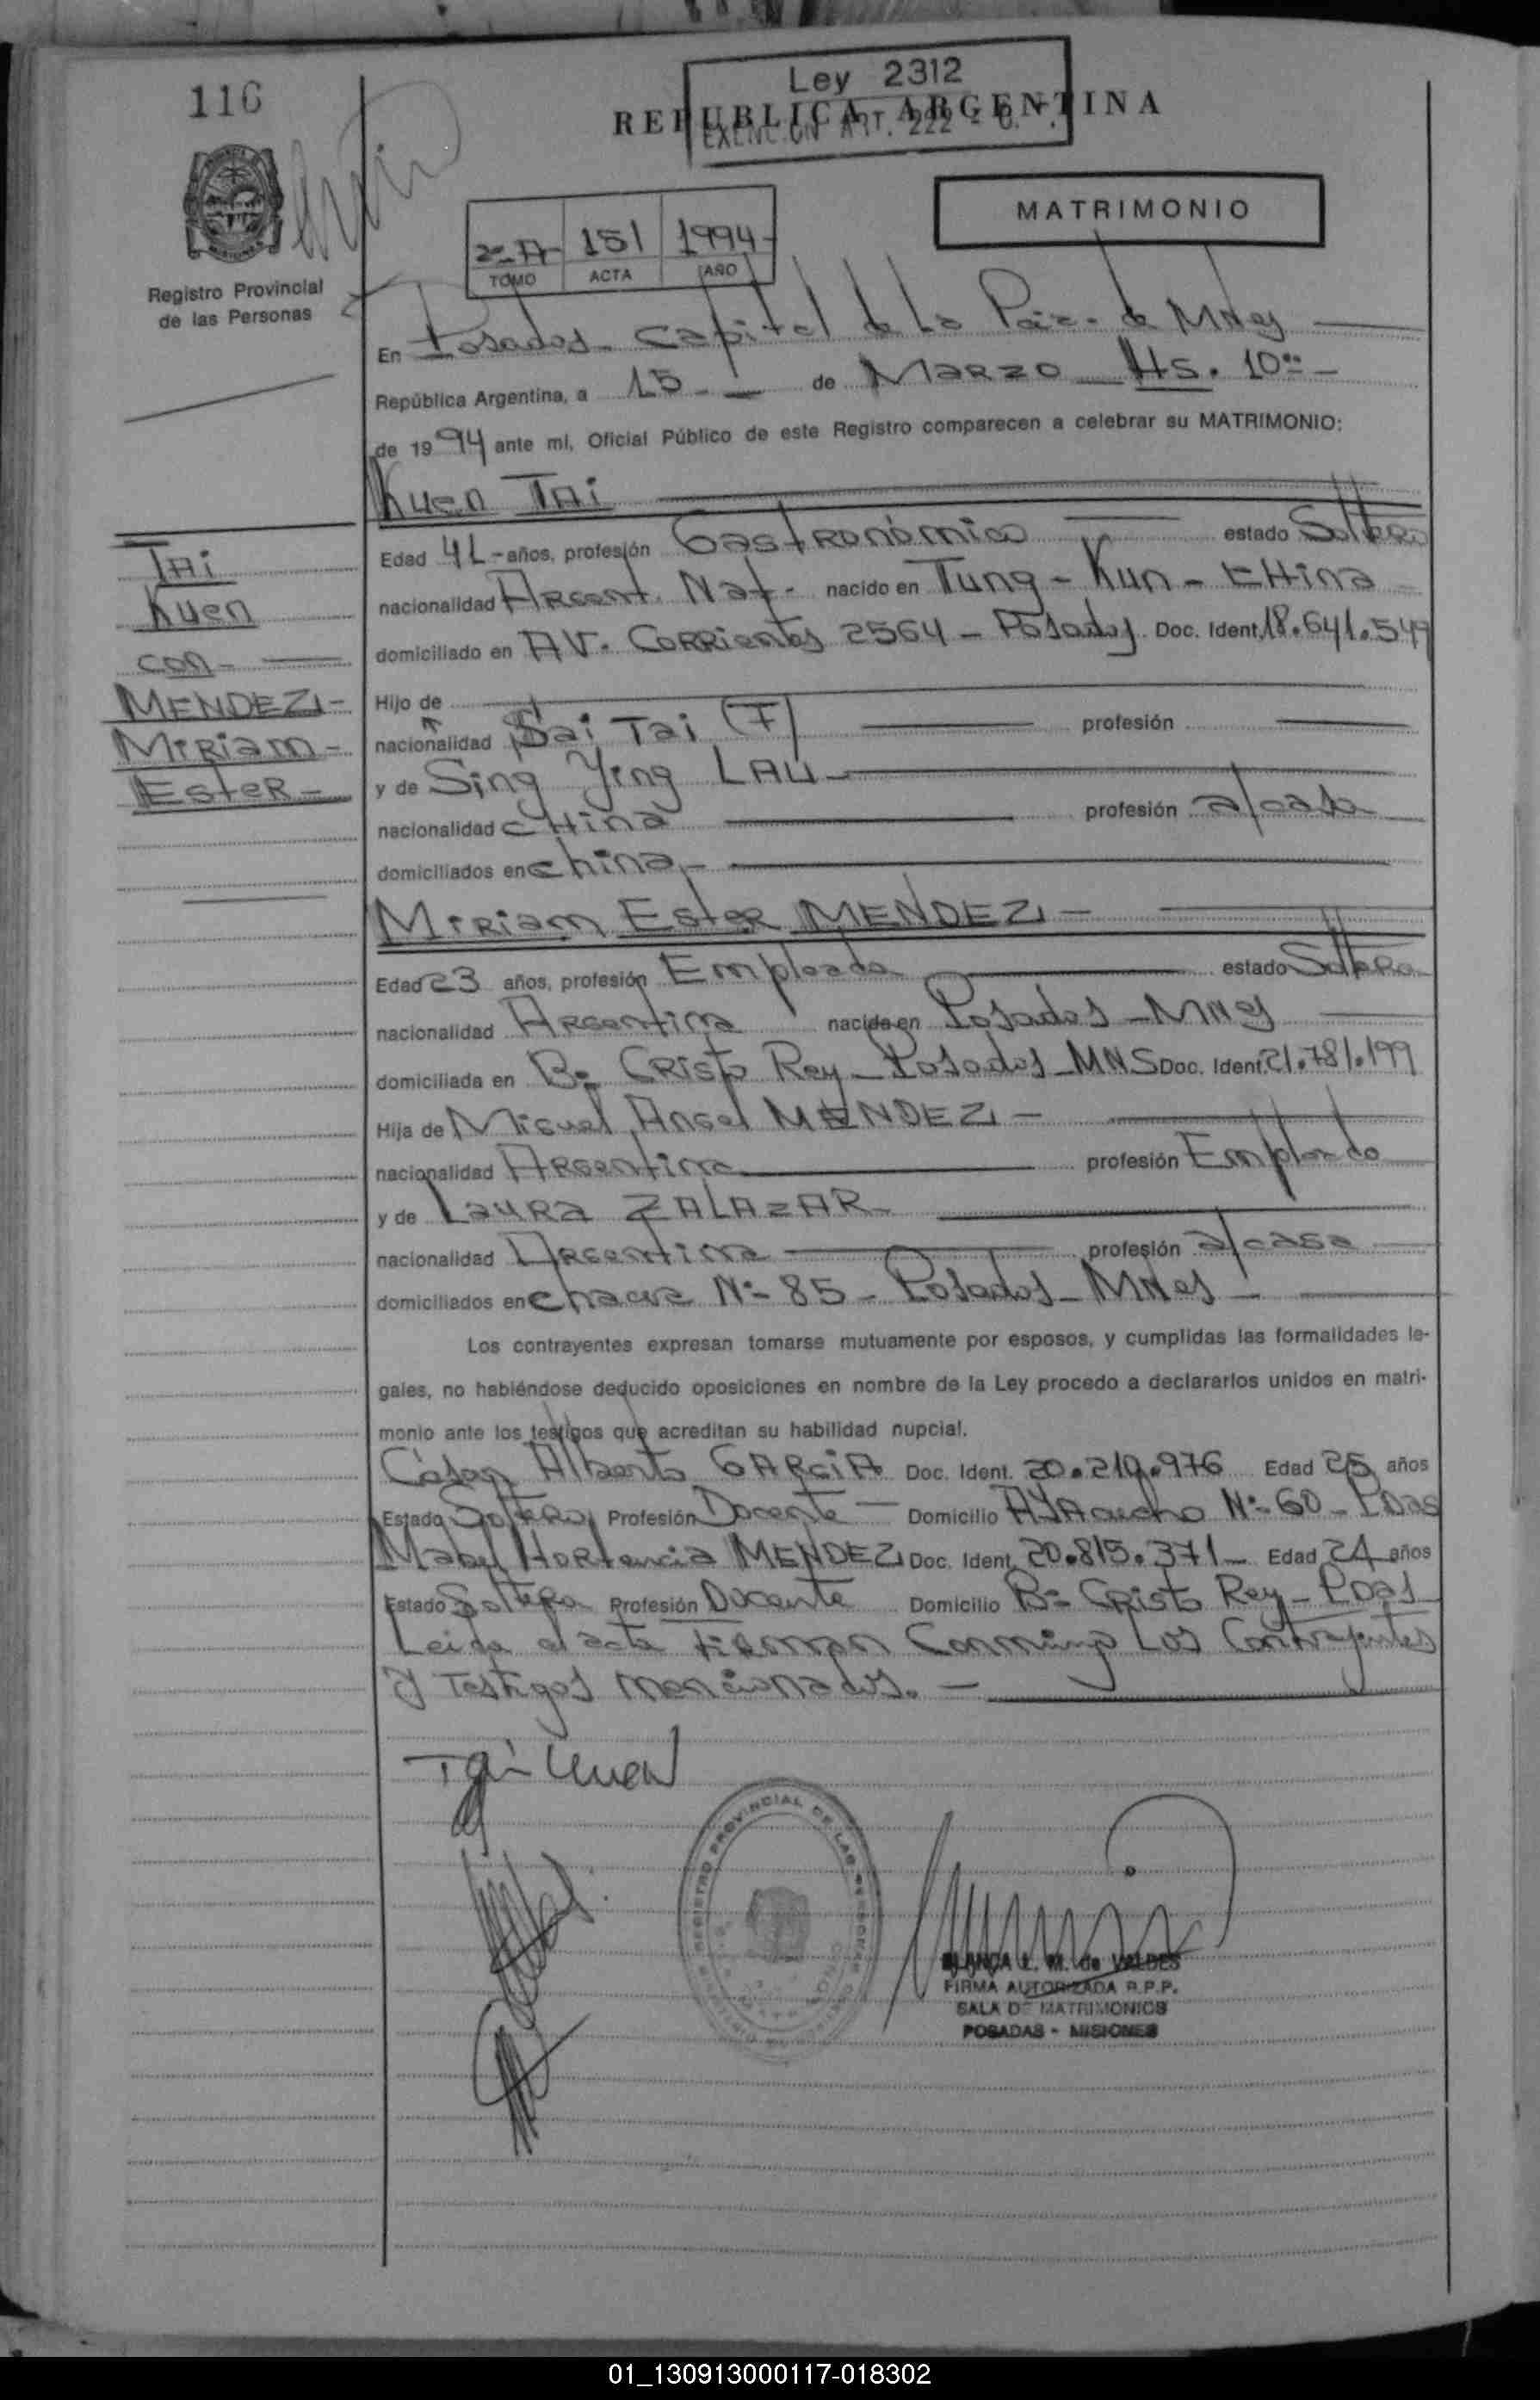 116
Ley 2312
REPUBLICA ARGENTINA
EXENCION ART. 222 -
MATRIMONIO
2-A 151 1994-
TOMO ACTA AÑO
Registro Provincial
de las Personas
En Posadas - Capital de la Pcia. de MNes
República Argentina, a 15 - de Marzo Hs. 10
de 1994 ante mí, Oficial Público de este Registro comparecen a celebrar su MATRIMONIO:
Kuen TAi
Edad 41 - años, profesión Gastronómico estado Soltero
nacionalidad Argent. Nat. nacido en Tung - Kun - CHina
domiciliado en AV. Corrientes 2564 - Posadas Doc. Ident. 18.641.549
Hijo de
nacionalidad Sai Tai (F) profesión
y de Sing Ying LAU
nacionalidad CHina profesión a/casa
domiciliados en China -
Miriam Ester MENDEZ -
Edad 23 años, profesión Empleada estado Soltera
nacionalidad Argentina nacida en Posadas - MNes
domiciliada en Bº Cristo Rey - Posadas - MNS Doc. Ident. 21.781.199
Hija de Miguel Angel MENDEZ -
nacionalidad Argentina profesión Empleado
y de Laura ZALAZAR -
nacionalidad Argentina profesión a/casa
domiciliados en Chacra Nº 85 - Posadas - MNes
Los contrayentes expresan tomarse mutuamente por esposos, y cumplidas las formalidades le-
gales, no habiéndose deducido oposiciones en nombre de la Ley procedo a declararlos unidos en matri-
monio ante los testigos que acreditan su habilidad nupcial.
Cesar Alberto GARCiA Doc. Ident. 20.210.976 Edad 25 años
Estado Soltero Profesión Docente - Domicilio AYAcucho Nº 60 - Pdas
Mabel Hortencia MENDEZ Doc. Ident. 20.815.371 - Edad 24 años
Estado Soltera Profesión Docente Domicilio Bº Cristo Rey - Pdas
Leida el acta Firman Conmigo Los Contrayentes
y Testigos mencionados. -
TAi
Kuen
con -
MENDEZ -
Miriam -
Ester -
Tai Kuen
REGISTRO PROVINCIAL DE LAS PERSONAS
BLANCA L. M. de VALDES
FIRMA AUTORIZADA R.P.P.
SALA DE MATRIMONIOS
POSADAS - MISIONES
01_130913000117-018302